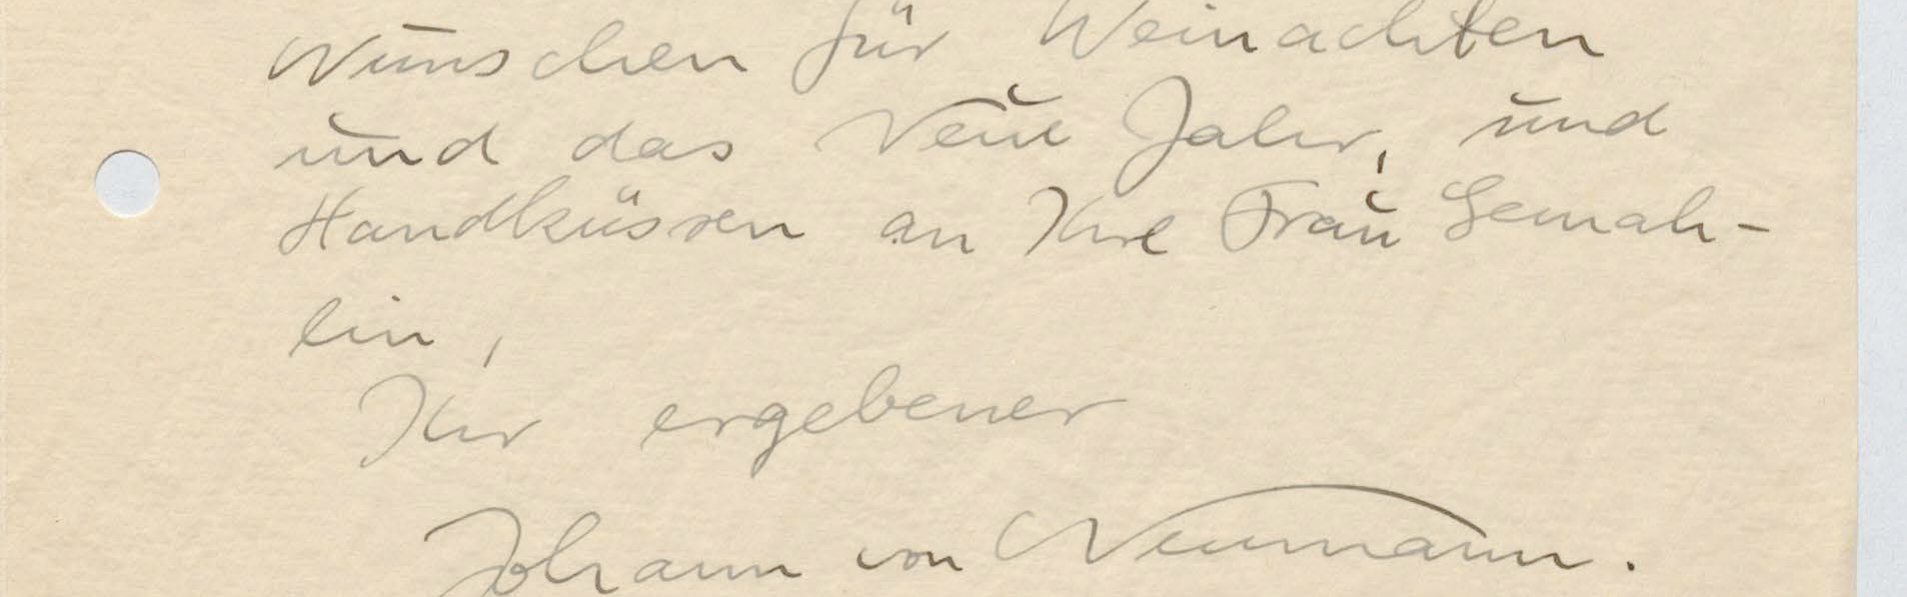 Wünschen für Weinachten
und das Neue Jahr, und
Handküssen an Ihre Frau Gemah-
lin,
Ihr ergebener
Johann von Neumann.